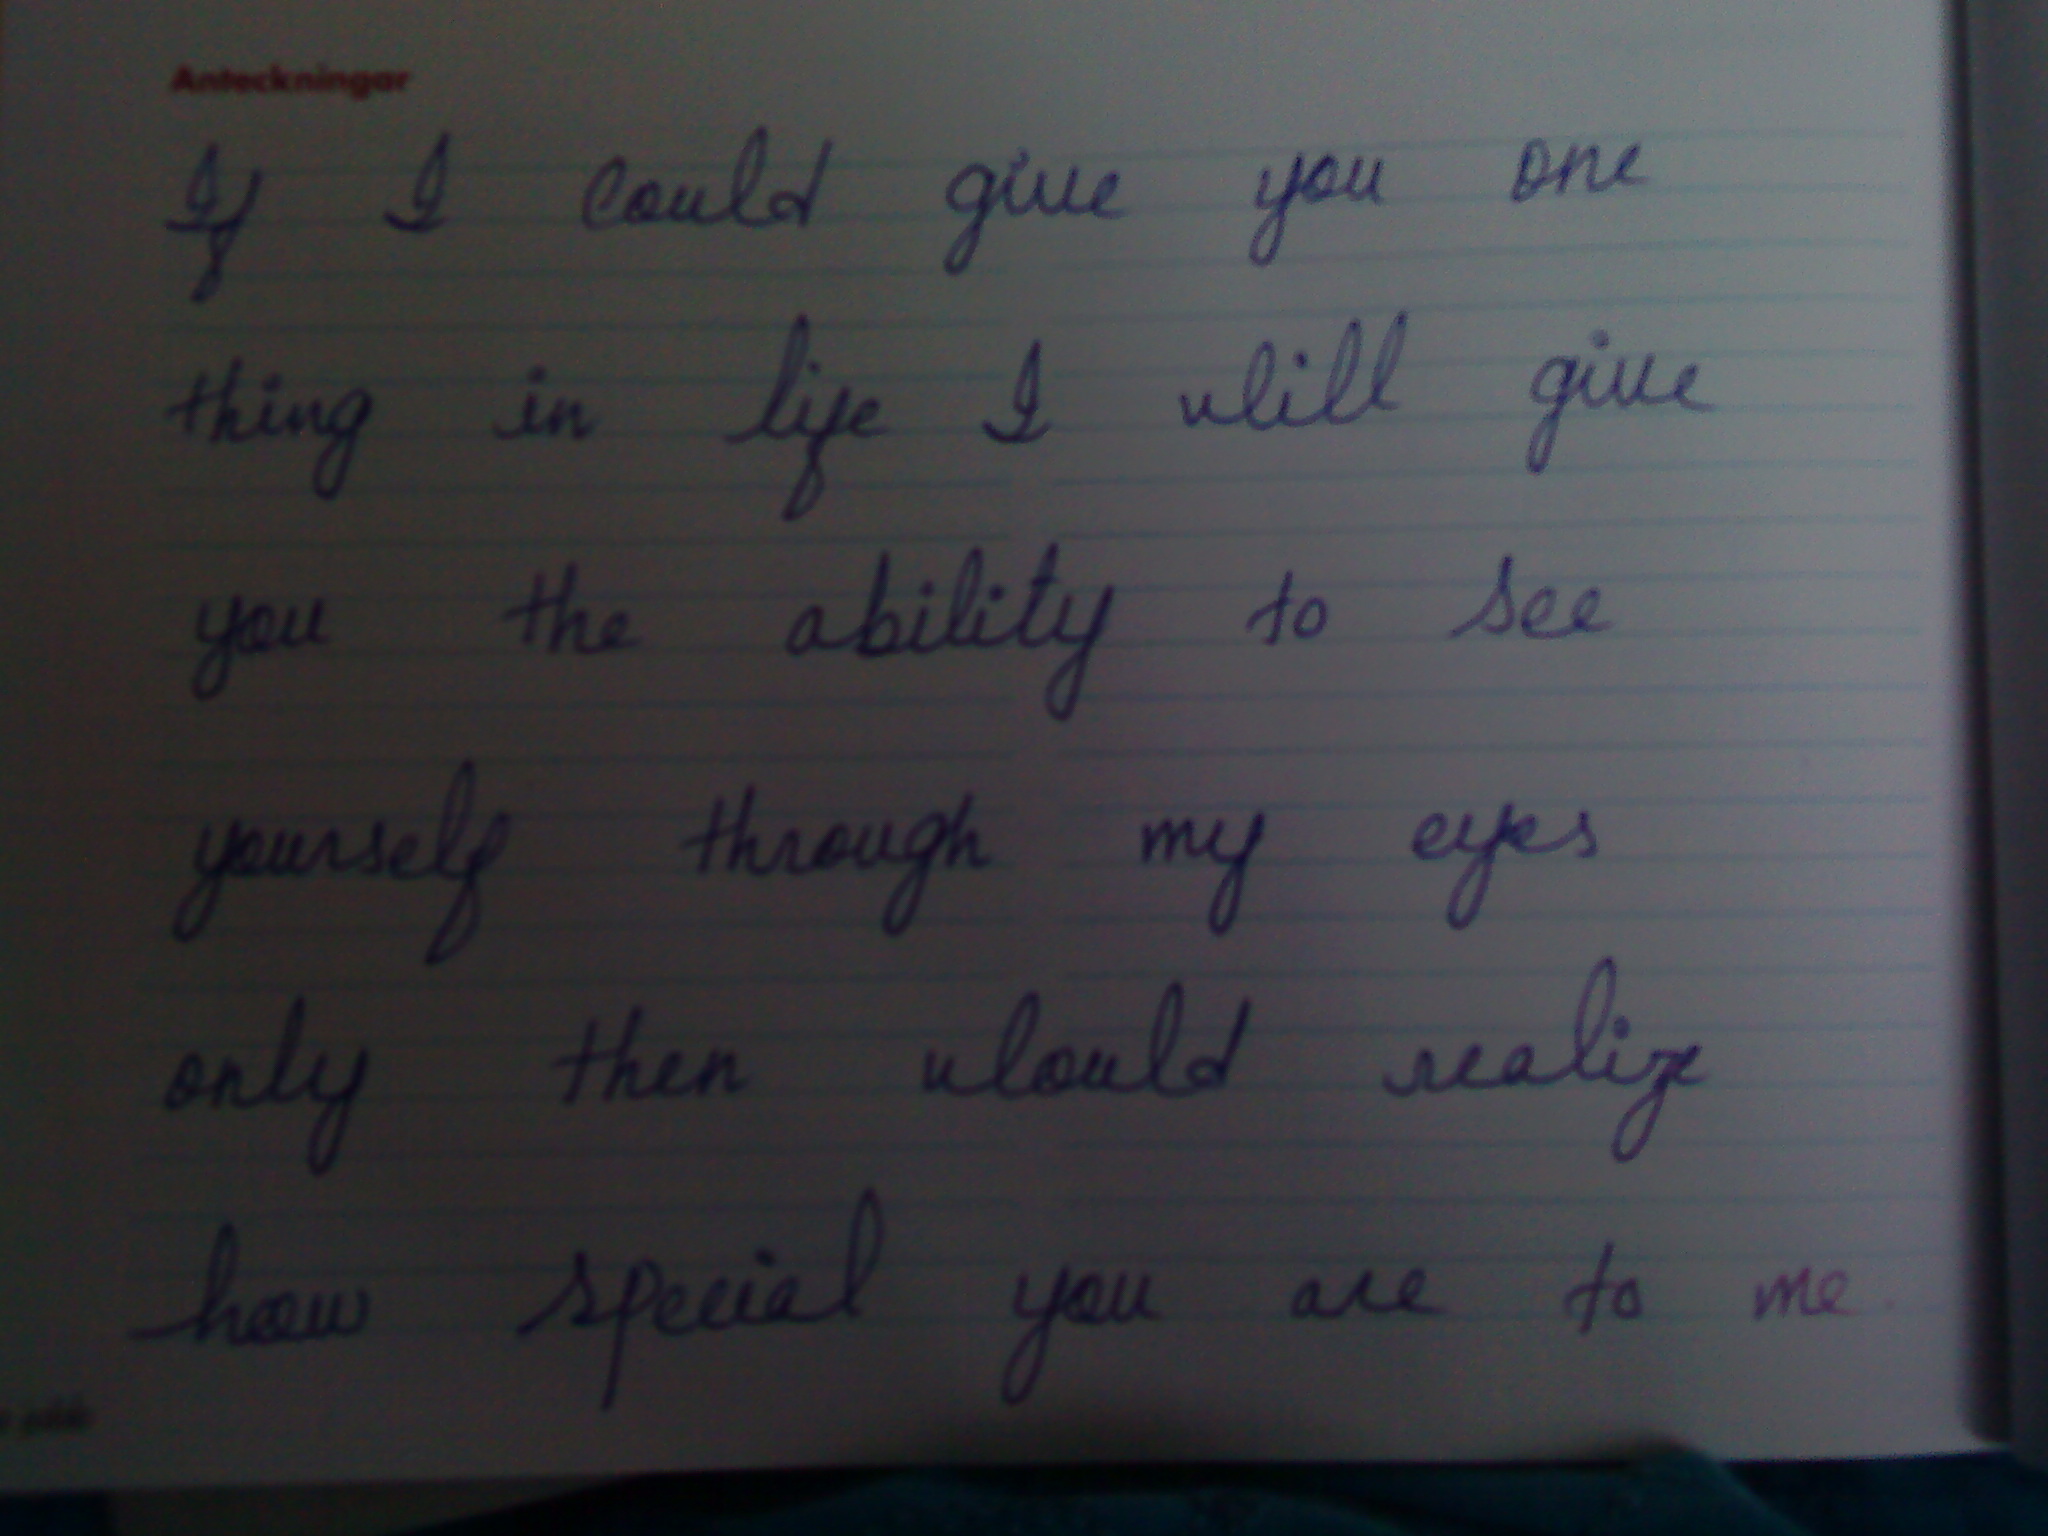 Anteckningar
If I could give you one
thing in life I will give
you the ability to see
yourself through my eyes
only then would realize
how special you are to me.